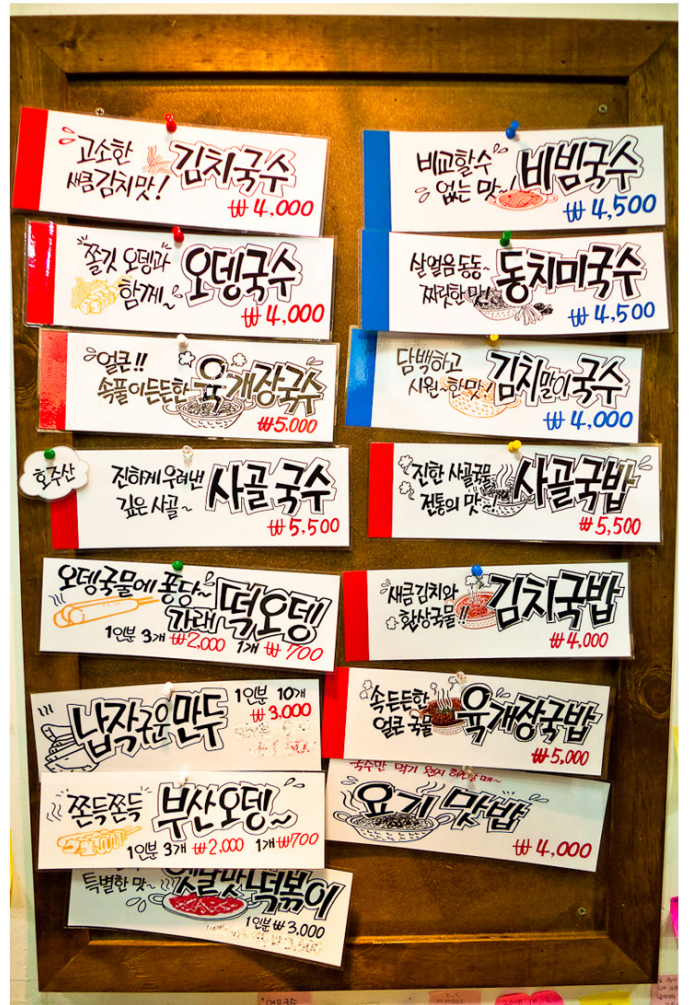 고소한
새큼김치맛!
김치국수
₩4,000
쫄깃 오뎅과
함께~
오뎅국수
₩4,000
얼큰!!
속풀이든든한
육개장국수
₩5,000
호주산
진하게우려낸
깊은사골~
사골국수
₩5,500
오뎅국물에 퐁당~
가래떡오뎅
1인분 3개 ₩2,000 1개 ₩700
납작구운만두
1인분 10개
₩3,000
쫀득쫀득
부산오뎅~
1인분 3개 ₩2,000 1개 ₩700
특별한 맛~
옛날맛떡볶이
1인분 ₩3,000
비교할수
없는 맛~!
비빔국수
₩4,500
살얼음동동~
짜릿한맛!
동치미국수
₩4,500
담백하고
시원~한맛!
김치말이국수
₩4,000
진한 사골국물
전통의 맛~
사골국밥
₩5,500
새큼김치와
환상국물!!
김치국밥
₩4,000
속든든한
얼큰 국물
육개장국밥
₩5,000
국수만 먹기
요기 맛밥
₩4,000